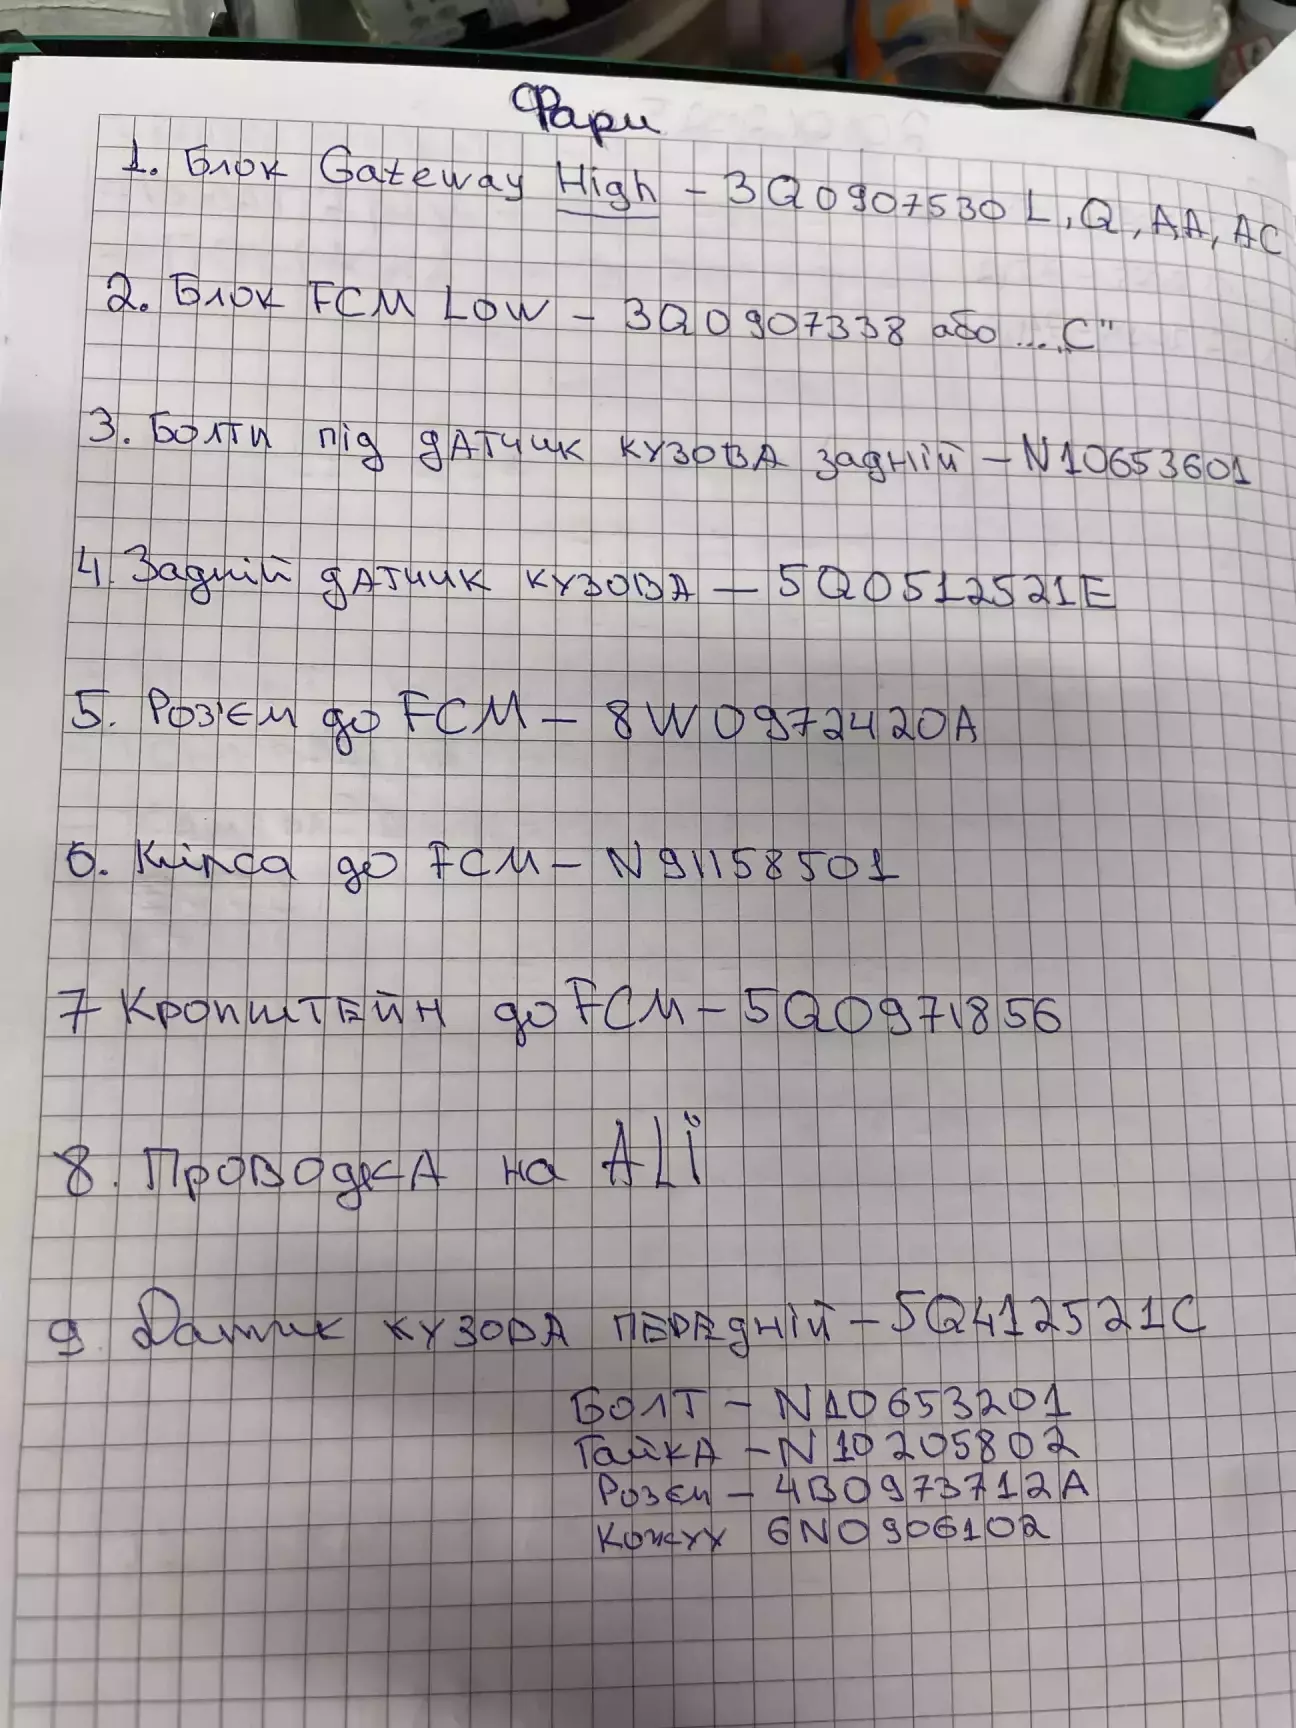 Фари
1. Блок Gateway High - 3Q0907530 L, Q, AA, AC
2. Блок FCM Low - 3Q0907338 або ... „C"
3. Болти під датчик кузова задній - N10653601
4 Задній датчик кузова - 5Q0512521E
5. Роз'єм до FCM - 8W0972420A
6. Кліпса до FCM - N91158501
7 Кропштейн до FCM - 5Q0971856
8. Проводка на ALi
9. Датчик кузова передній - 5Q412521C
Болт - N10653201
Гайка - N10205802
Розєм - 4B0973712A
Кожух 6N0906102